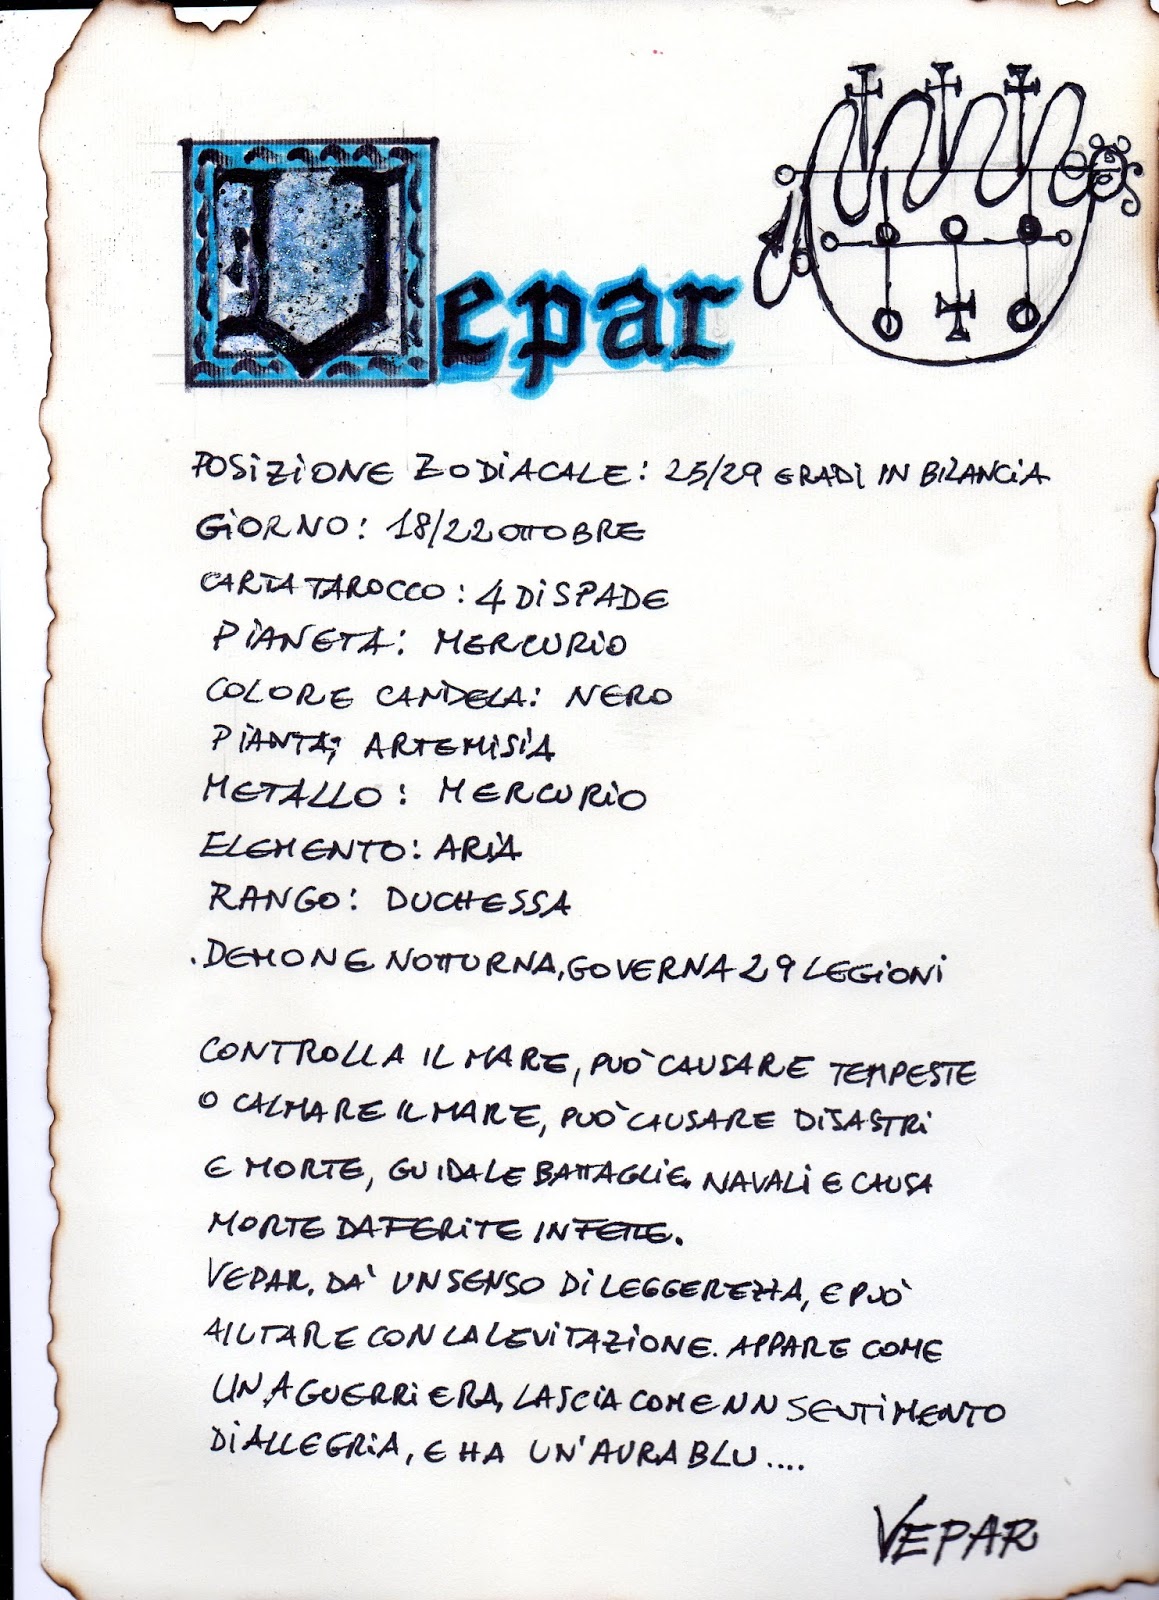 Vepar
POSIZIONE ZODIACALE: 25/29 GRADI IN BILANCIA
GIORNO: 18/22 OTTOBRE
CARTA TAROCCO: 4 DI SPADE
PIANETA: MERCURIO
COLORE CANDELA: NERO
PIANTA; ARTEMISIA
METALLO: MERCURIO
ELEMENTO: ARIA
RANGO: DUCHESSA
.DEMONE NOTTURNA, GOVERNA 29 LEGIONI
CONTROLLA IL MARE, PUÒ CAUSARE TEMPESTE
O CALMARE IL MARE, PUÒ CAUSARE DISASTRI
E MORTE, GUIDA LE BATTAGLIE NAVALI E CAUSA
MORTE DA FERITE INFETTE.
VEPAR. DA' UN SENSO DI LEGGEREZZA, E PUÒ
AIUTARE CON LA LEVITAZIONE. APPARE COME
UNA GUERRIERA, LASCIA COME NN SENTIMENTO
DI ALLEGRIA, E HA UN'AURA BLU....
VEPAR